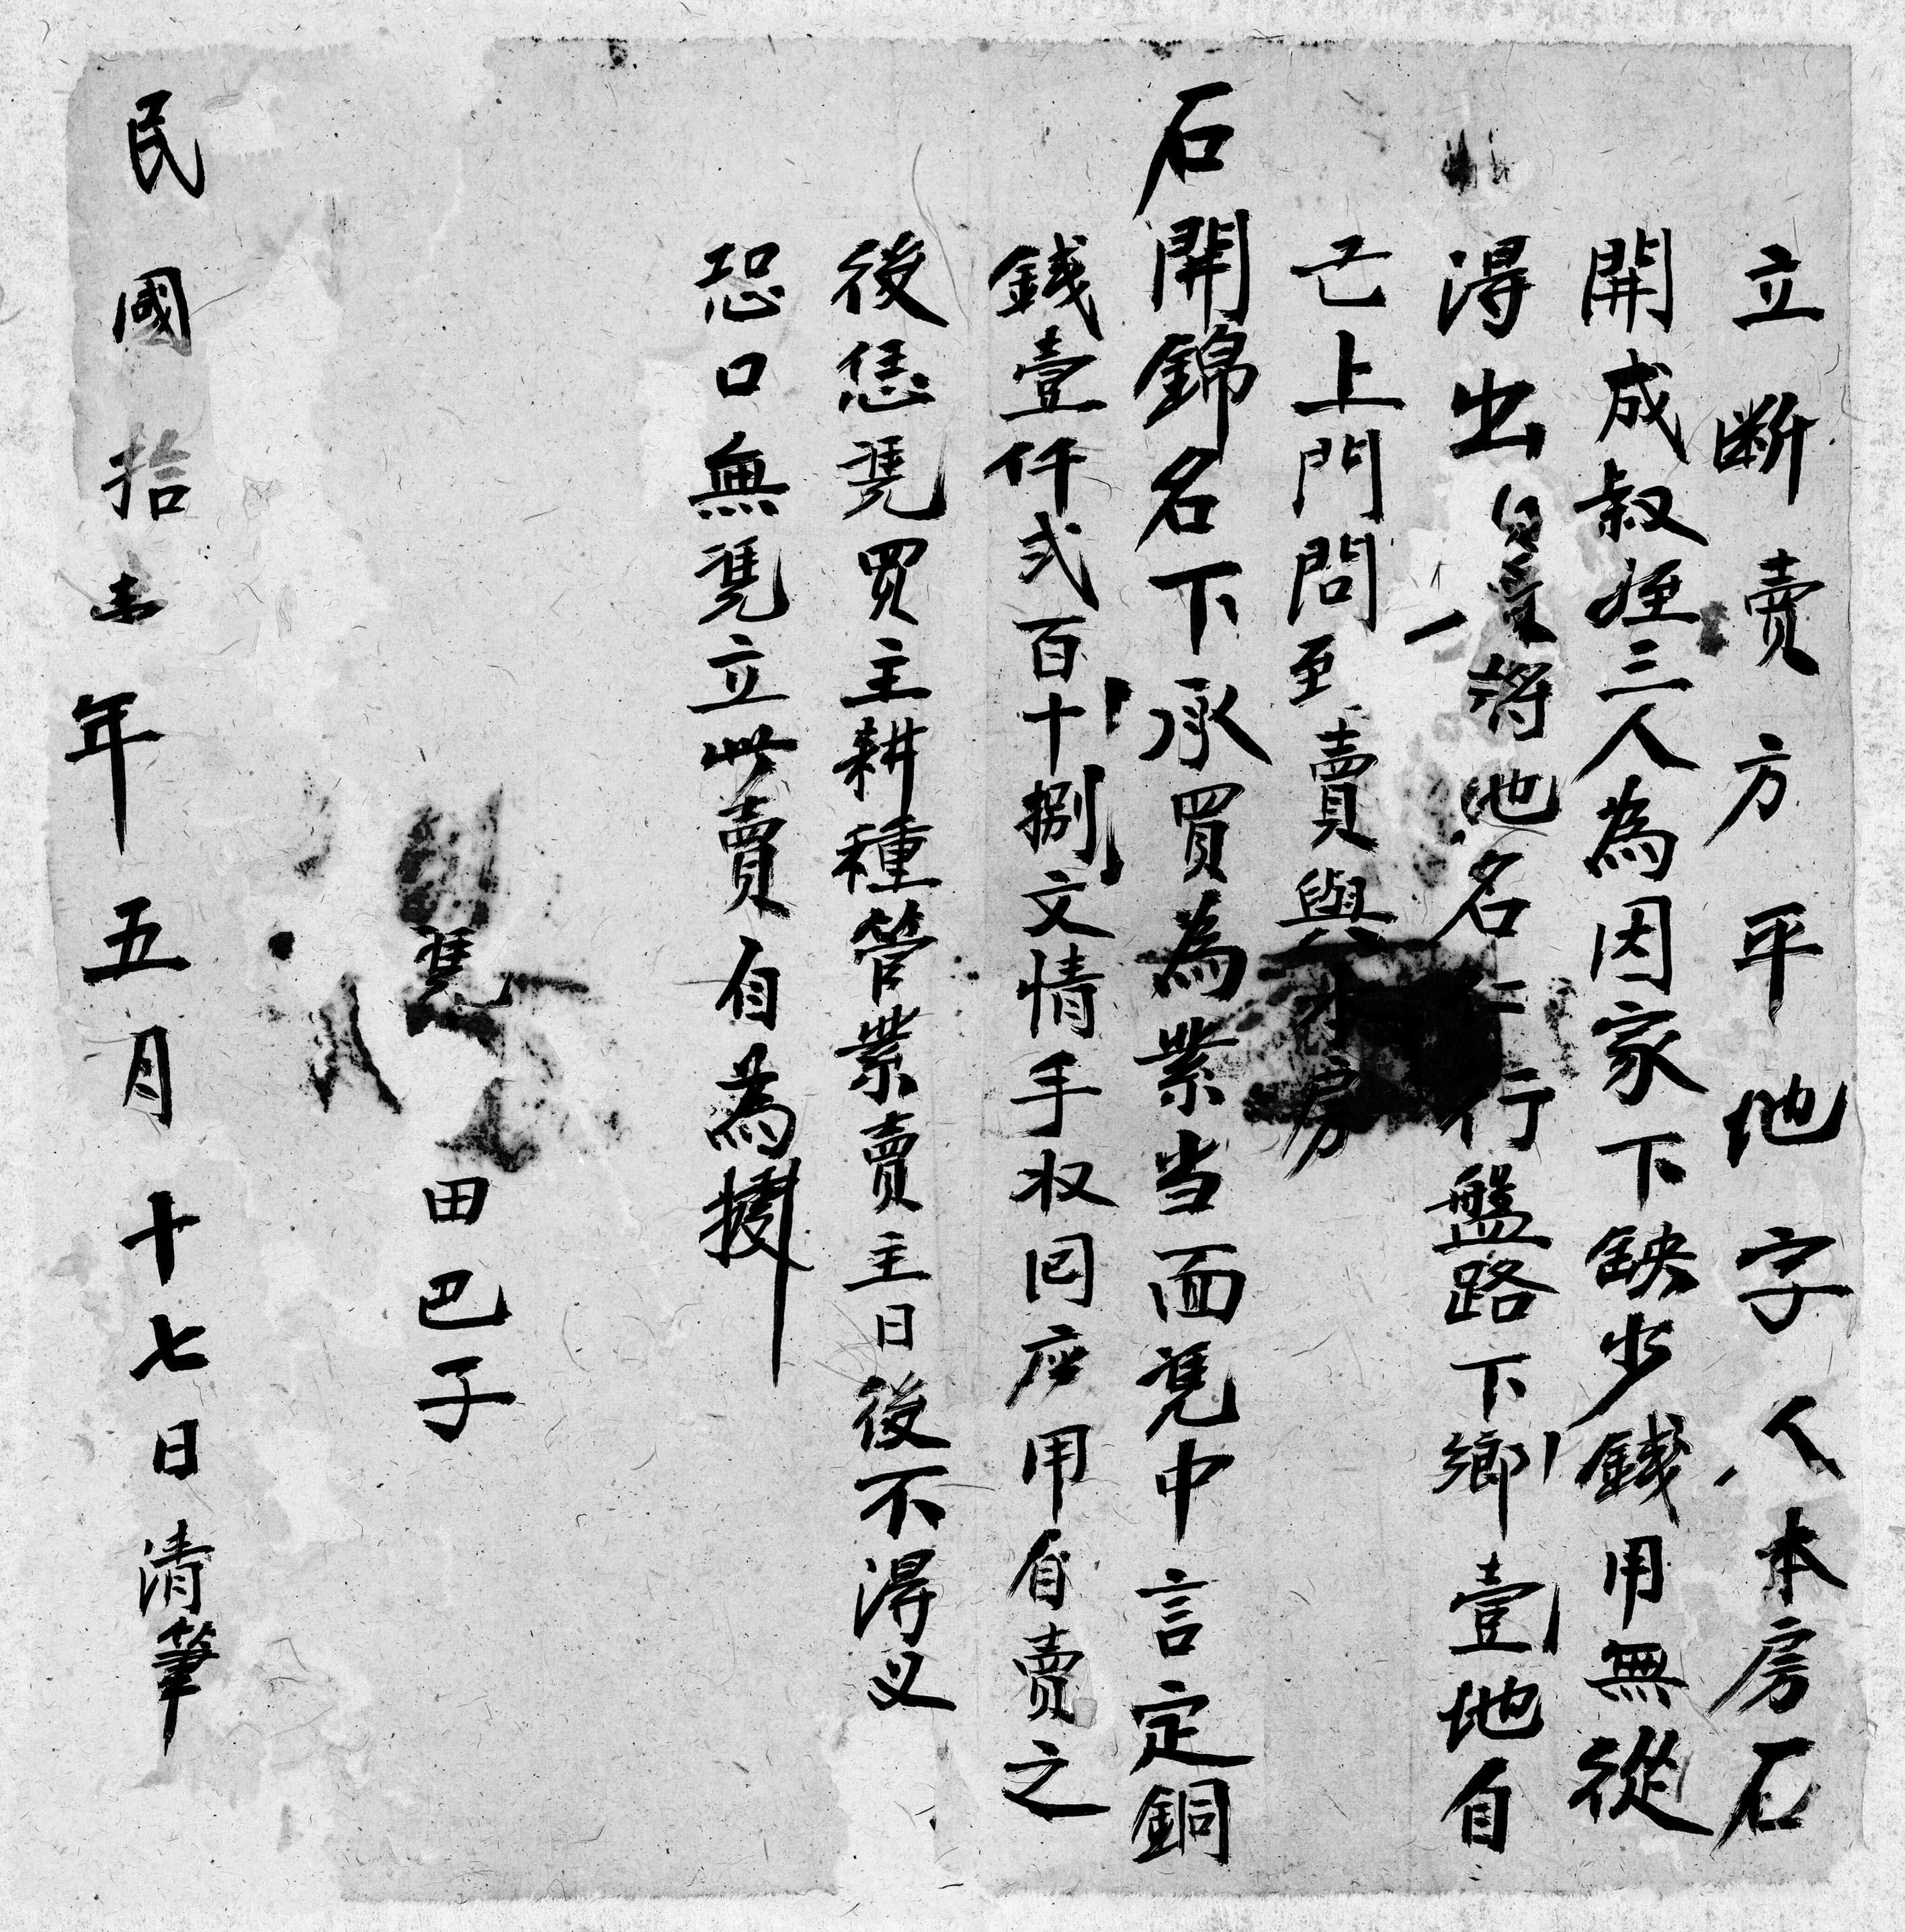 立断賣方平地字人本房石
開成叔姪三人為因家下缺少錢用無從
淂出自愿將地名仁行盤路下鄉壹地自
己上門問至賣與本房
石開錦名下承買為業当面凴中言定銅
錢壹仟弍百十捌文情手収囘应用自賣之
後恁凴買主耕種管業賣主日後不淂义
恐口無凴立此賣自為㨿
凴 田巴子
民國拾年五月十七日清筆